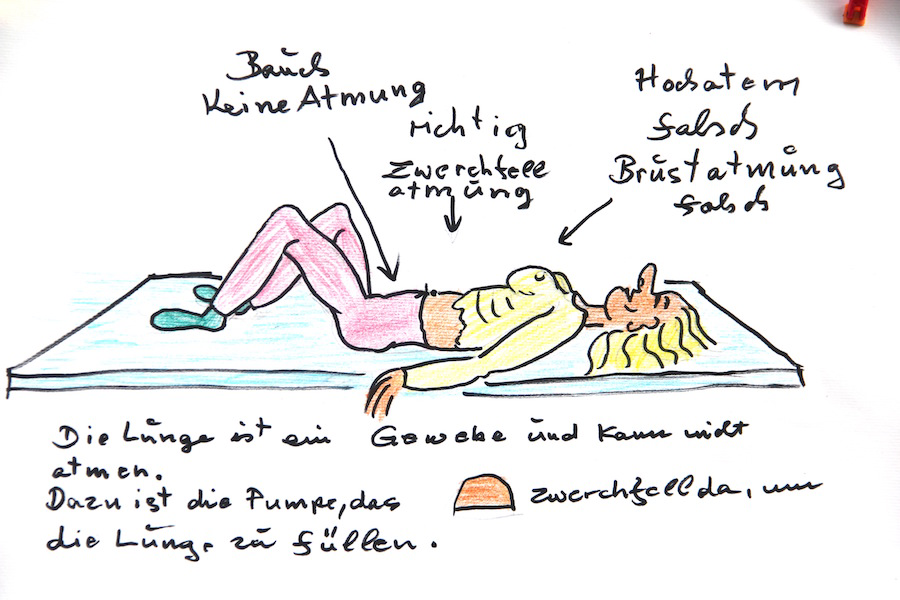 Bauch
Keine Atmung
richtig
Zwerchfell
atmung
Hochatem
falsch
Brustatmung
falsch
Die Lunge ist ein Gewebe und kann nicht
atmen.
Dazu ist die Pumpe, das Zwerchfell da, um
die Lunge zu füllen.